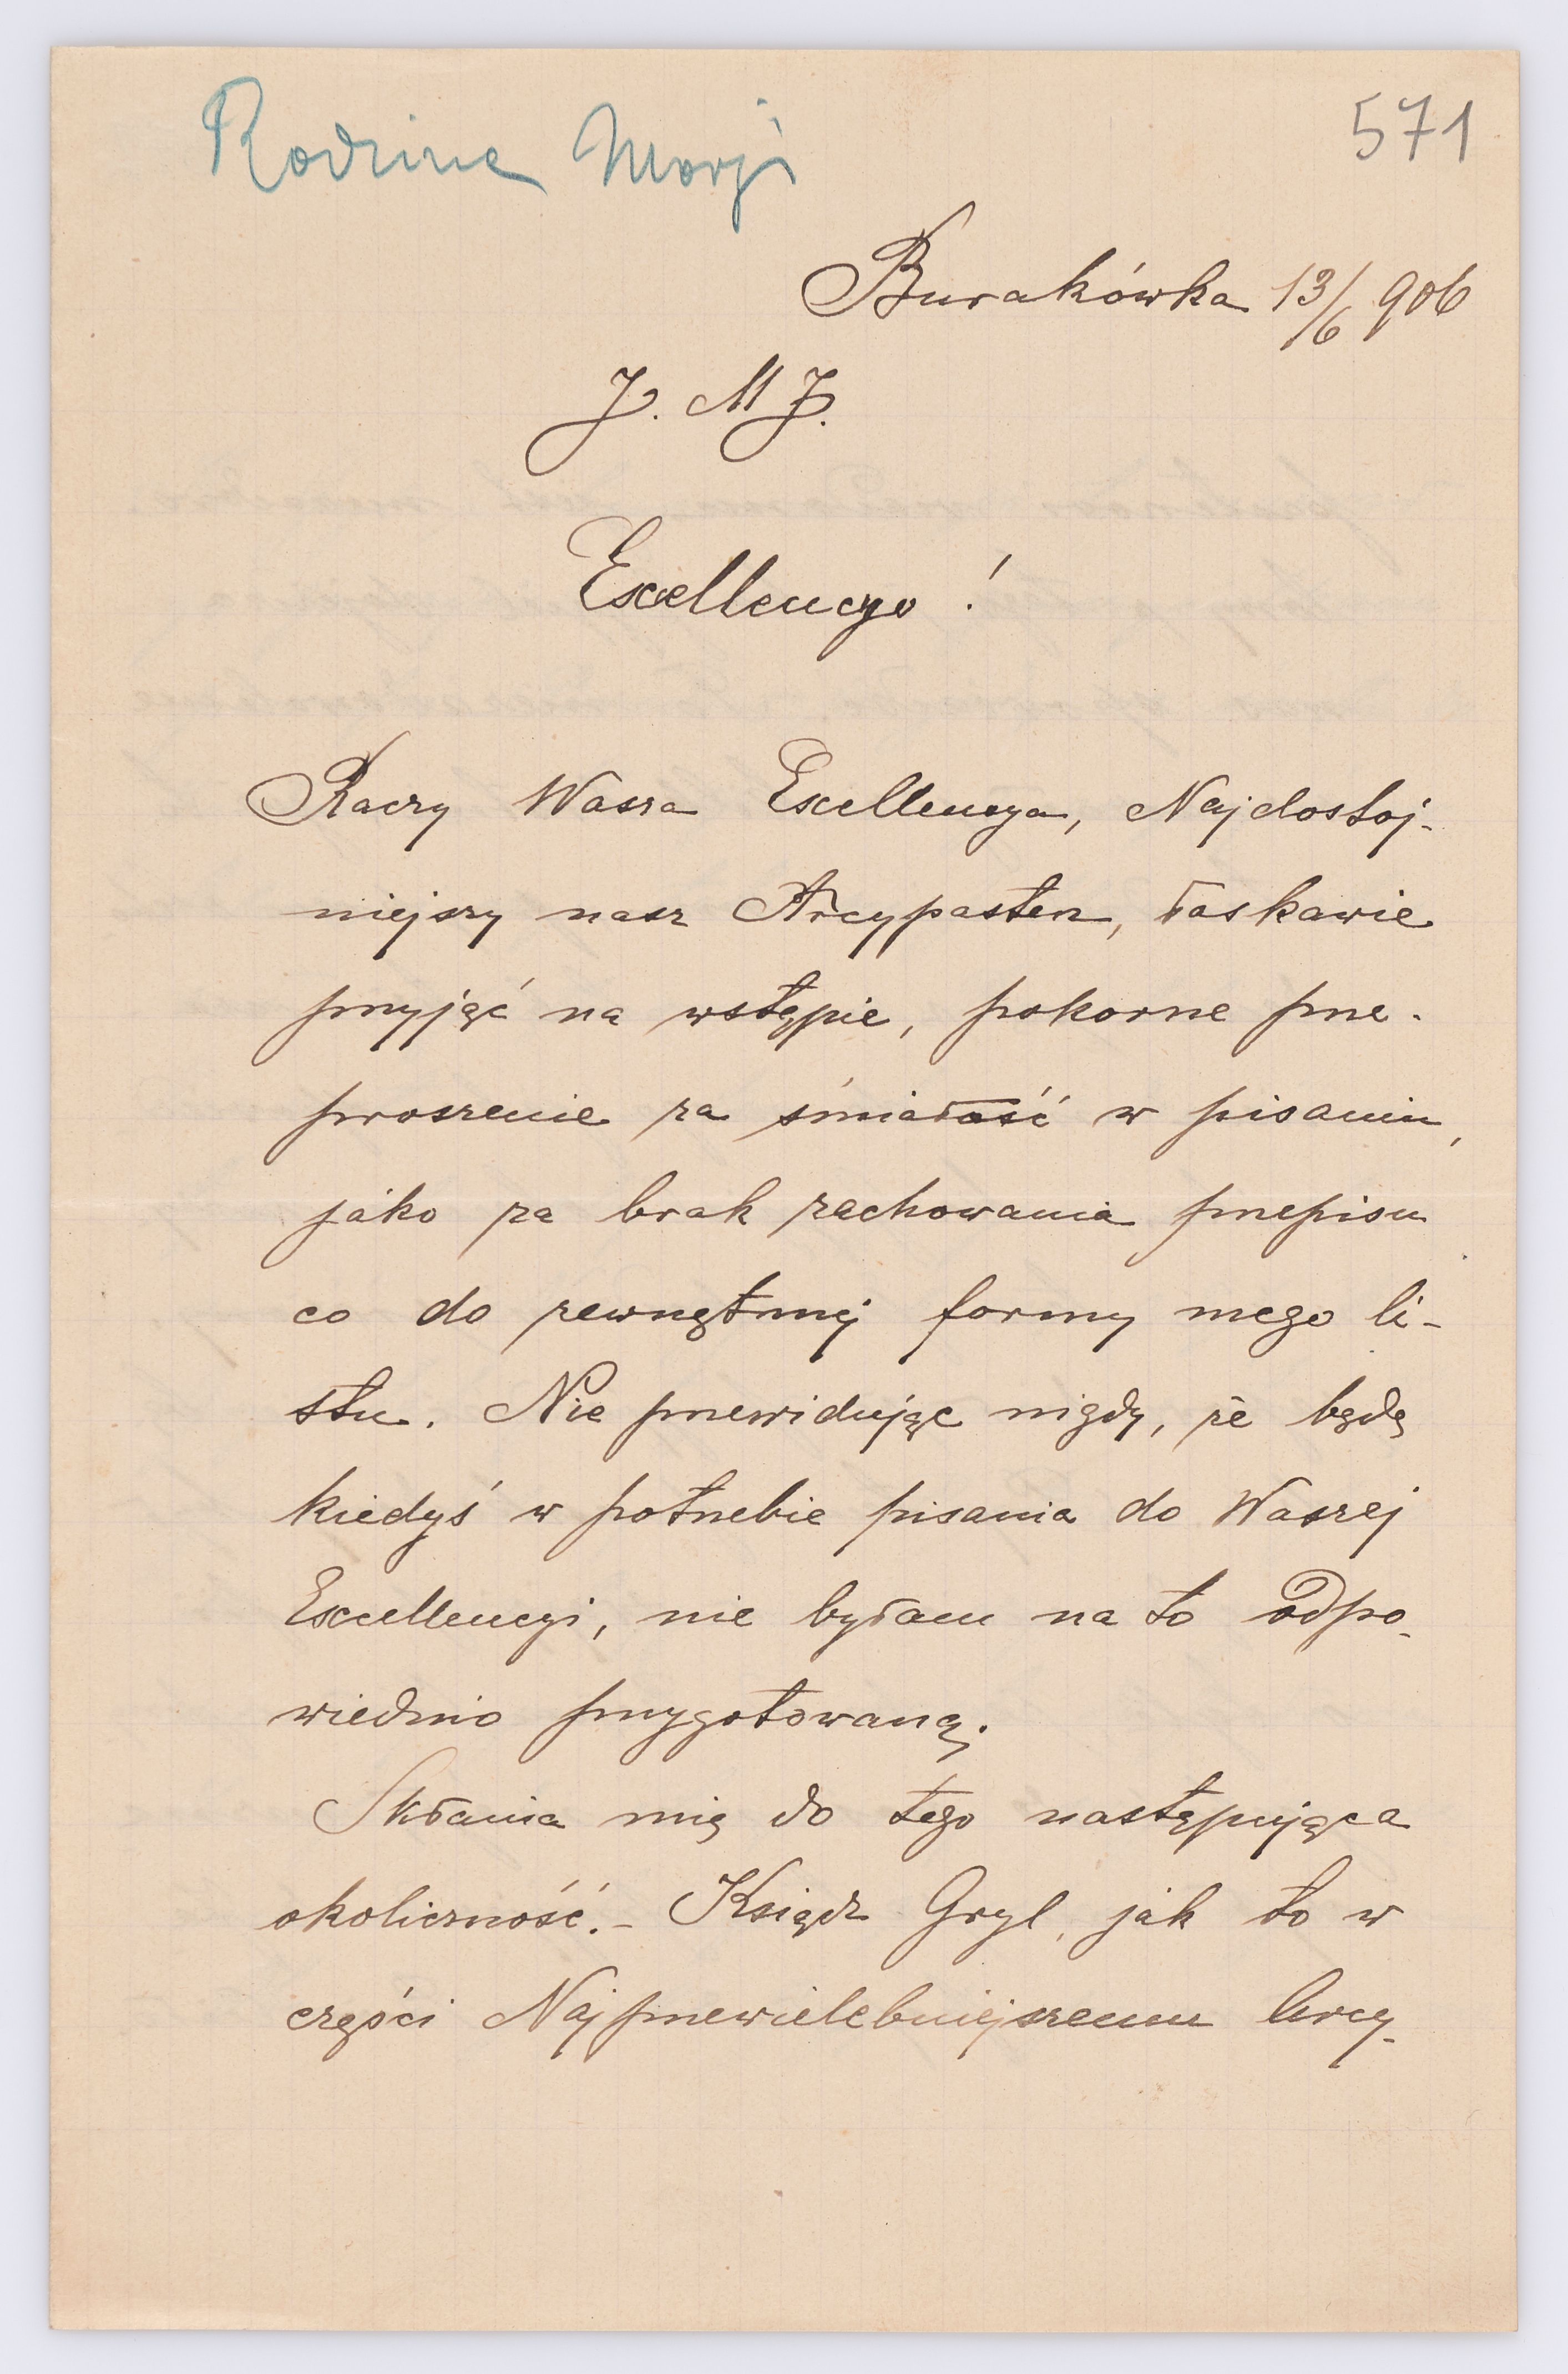 Rodzina Maryi
571
Burakówka 13/6 906
J. M J.
Excellencyo!
Raczy Wasza Excellencya, Najdostoj-
niejszy nasz Arcypasterz, łaskawie
przyjąć na wstępie, pokorne prze-
proszenie za śmiałość w pisaniu,
jako za brak zachowania przepisu
co do zewnętrznej formy mego li-
stu. Nie przewidując nigdy, że będę
kiedyś w potrzebie pisania do Waszej
Excellencyi, nie byłam na to odpo-
wiednio przygotowaną.
Skłania mię do tego następująca
okoliczność. - Ksiądz Gryl, jak to w
części Najprzewielebniejszemu Arcy-